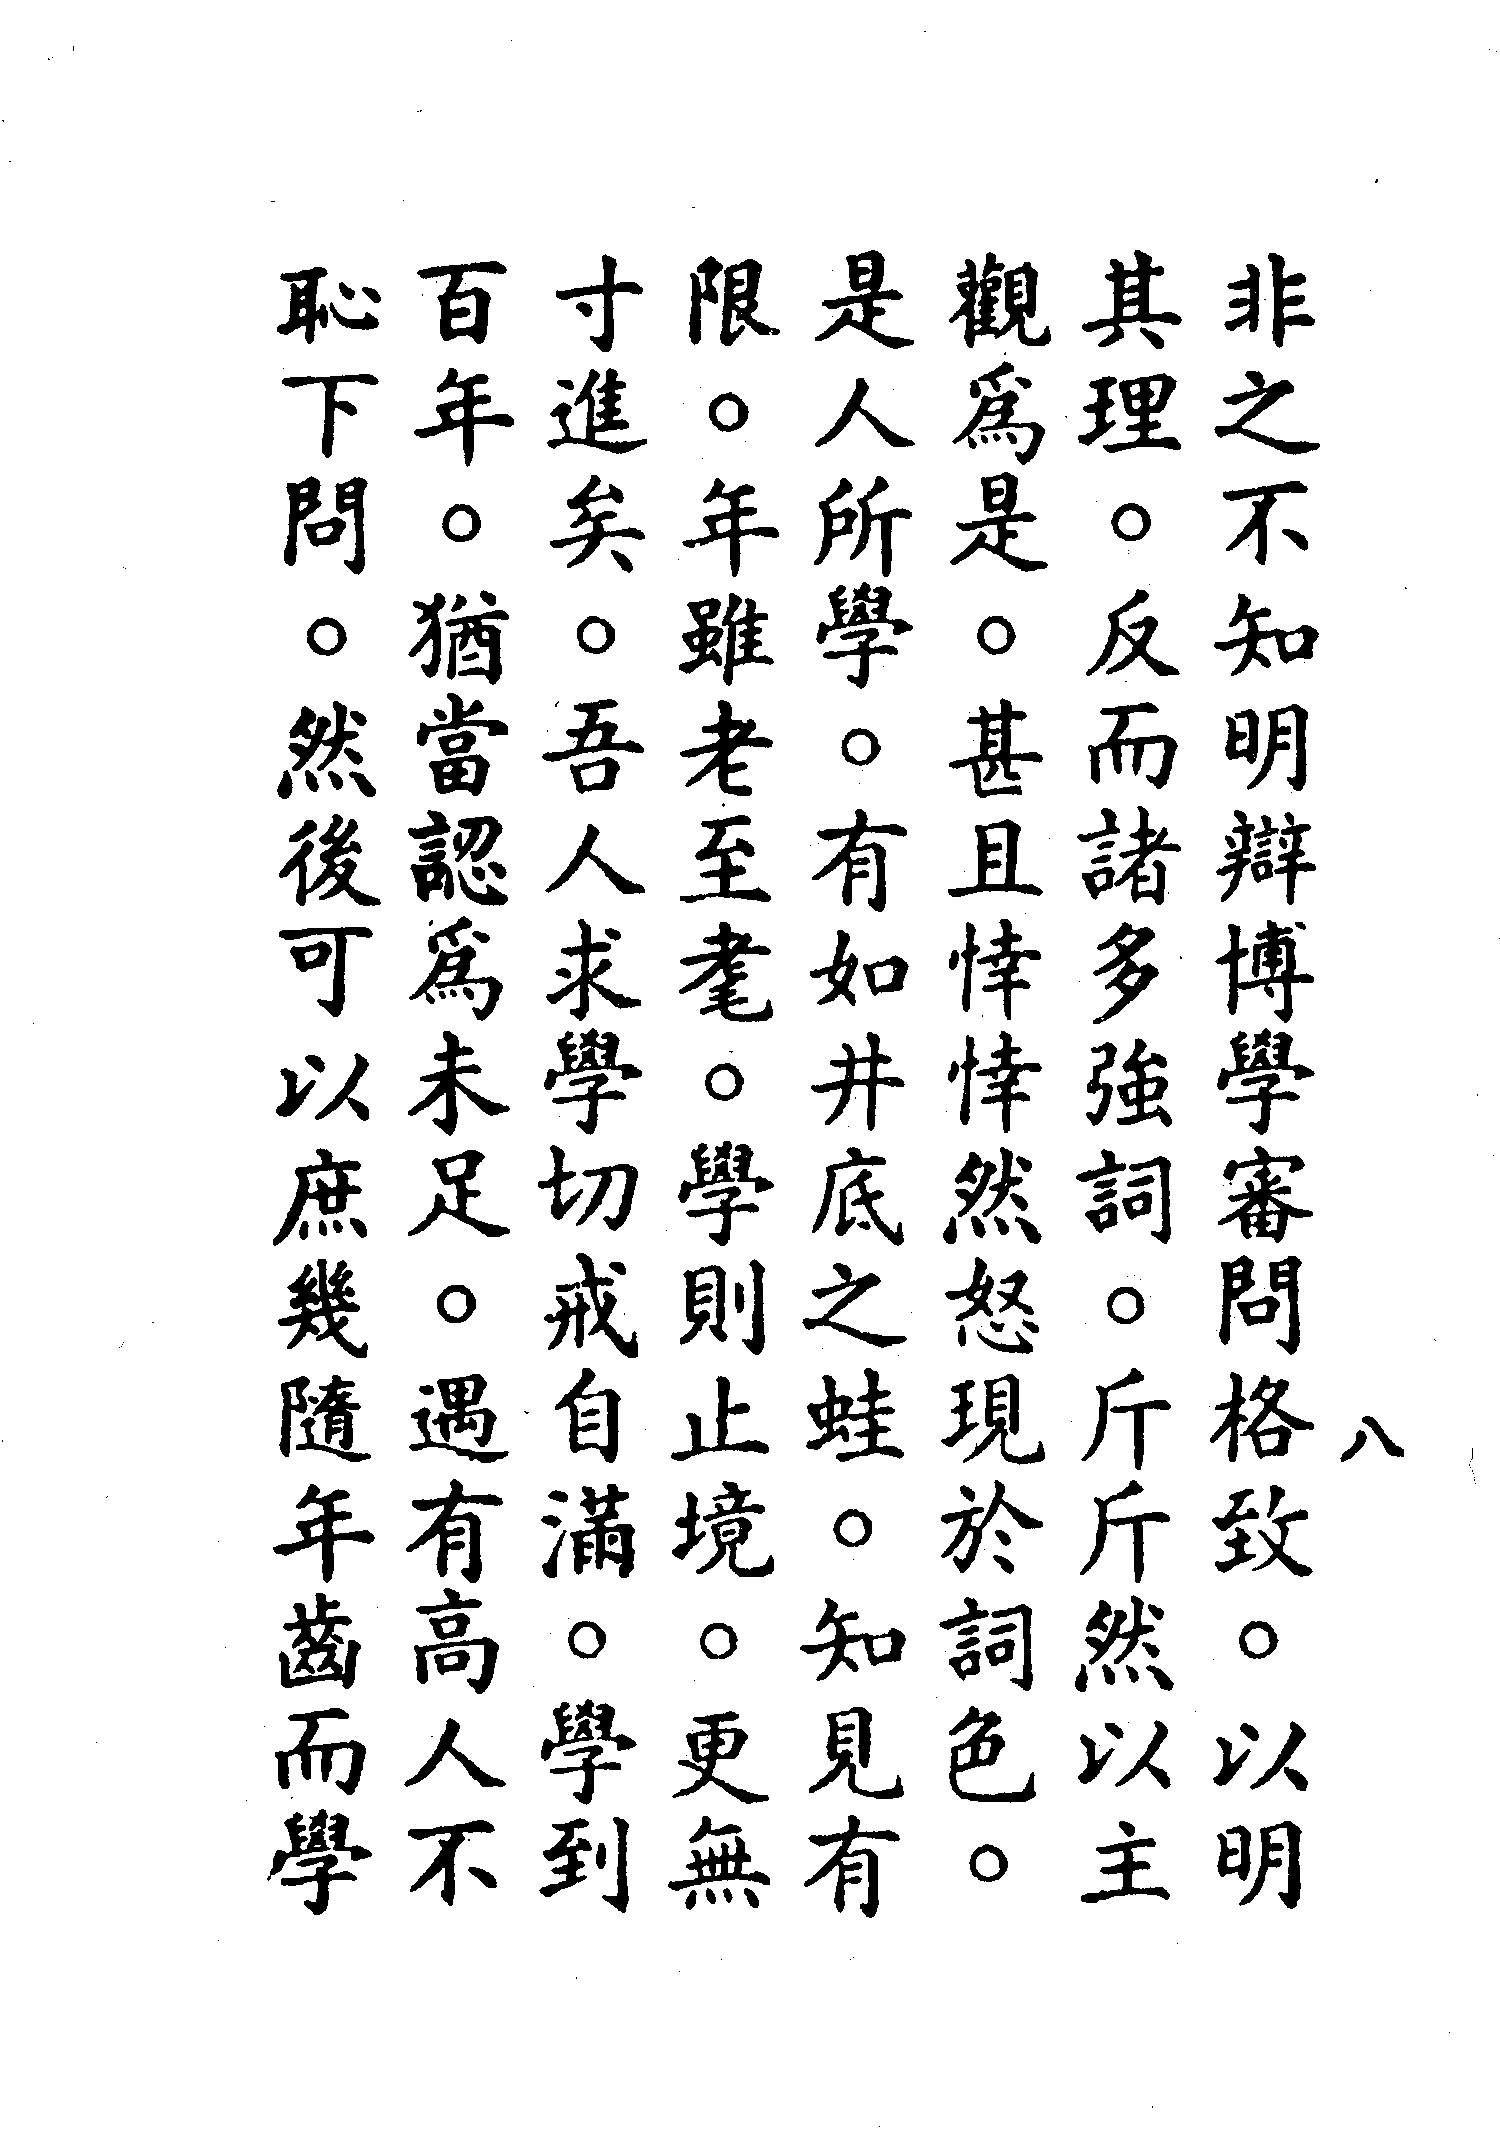 八
非之不知明辯博學審問格致。以明
其理。反而諸多強詞。斤斤然以主
觀爲是。甚且悻悻然怒現於詞色。
是人所學。有如井底之蛙。知見有
限。年雖老至耄。學則止境。更無
寸進矣。吾人求學切戒自滿。學到
百年。猶當認爲未足。遇有高人不
恥下問。然後可以庶幾隨年齒而學